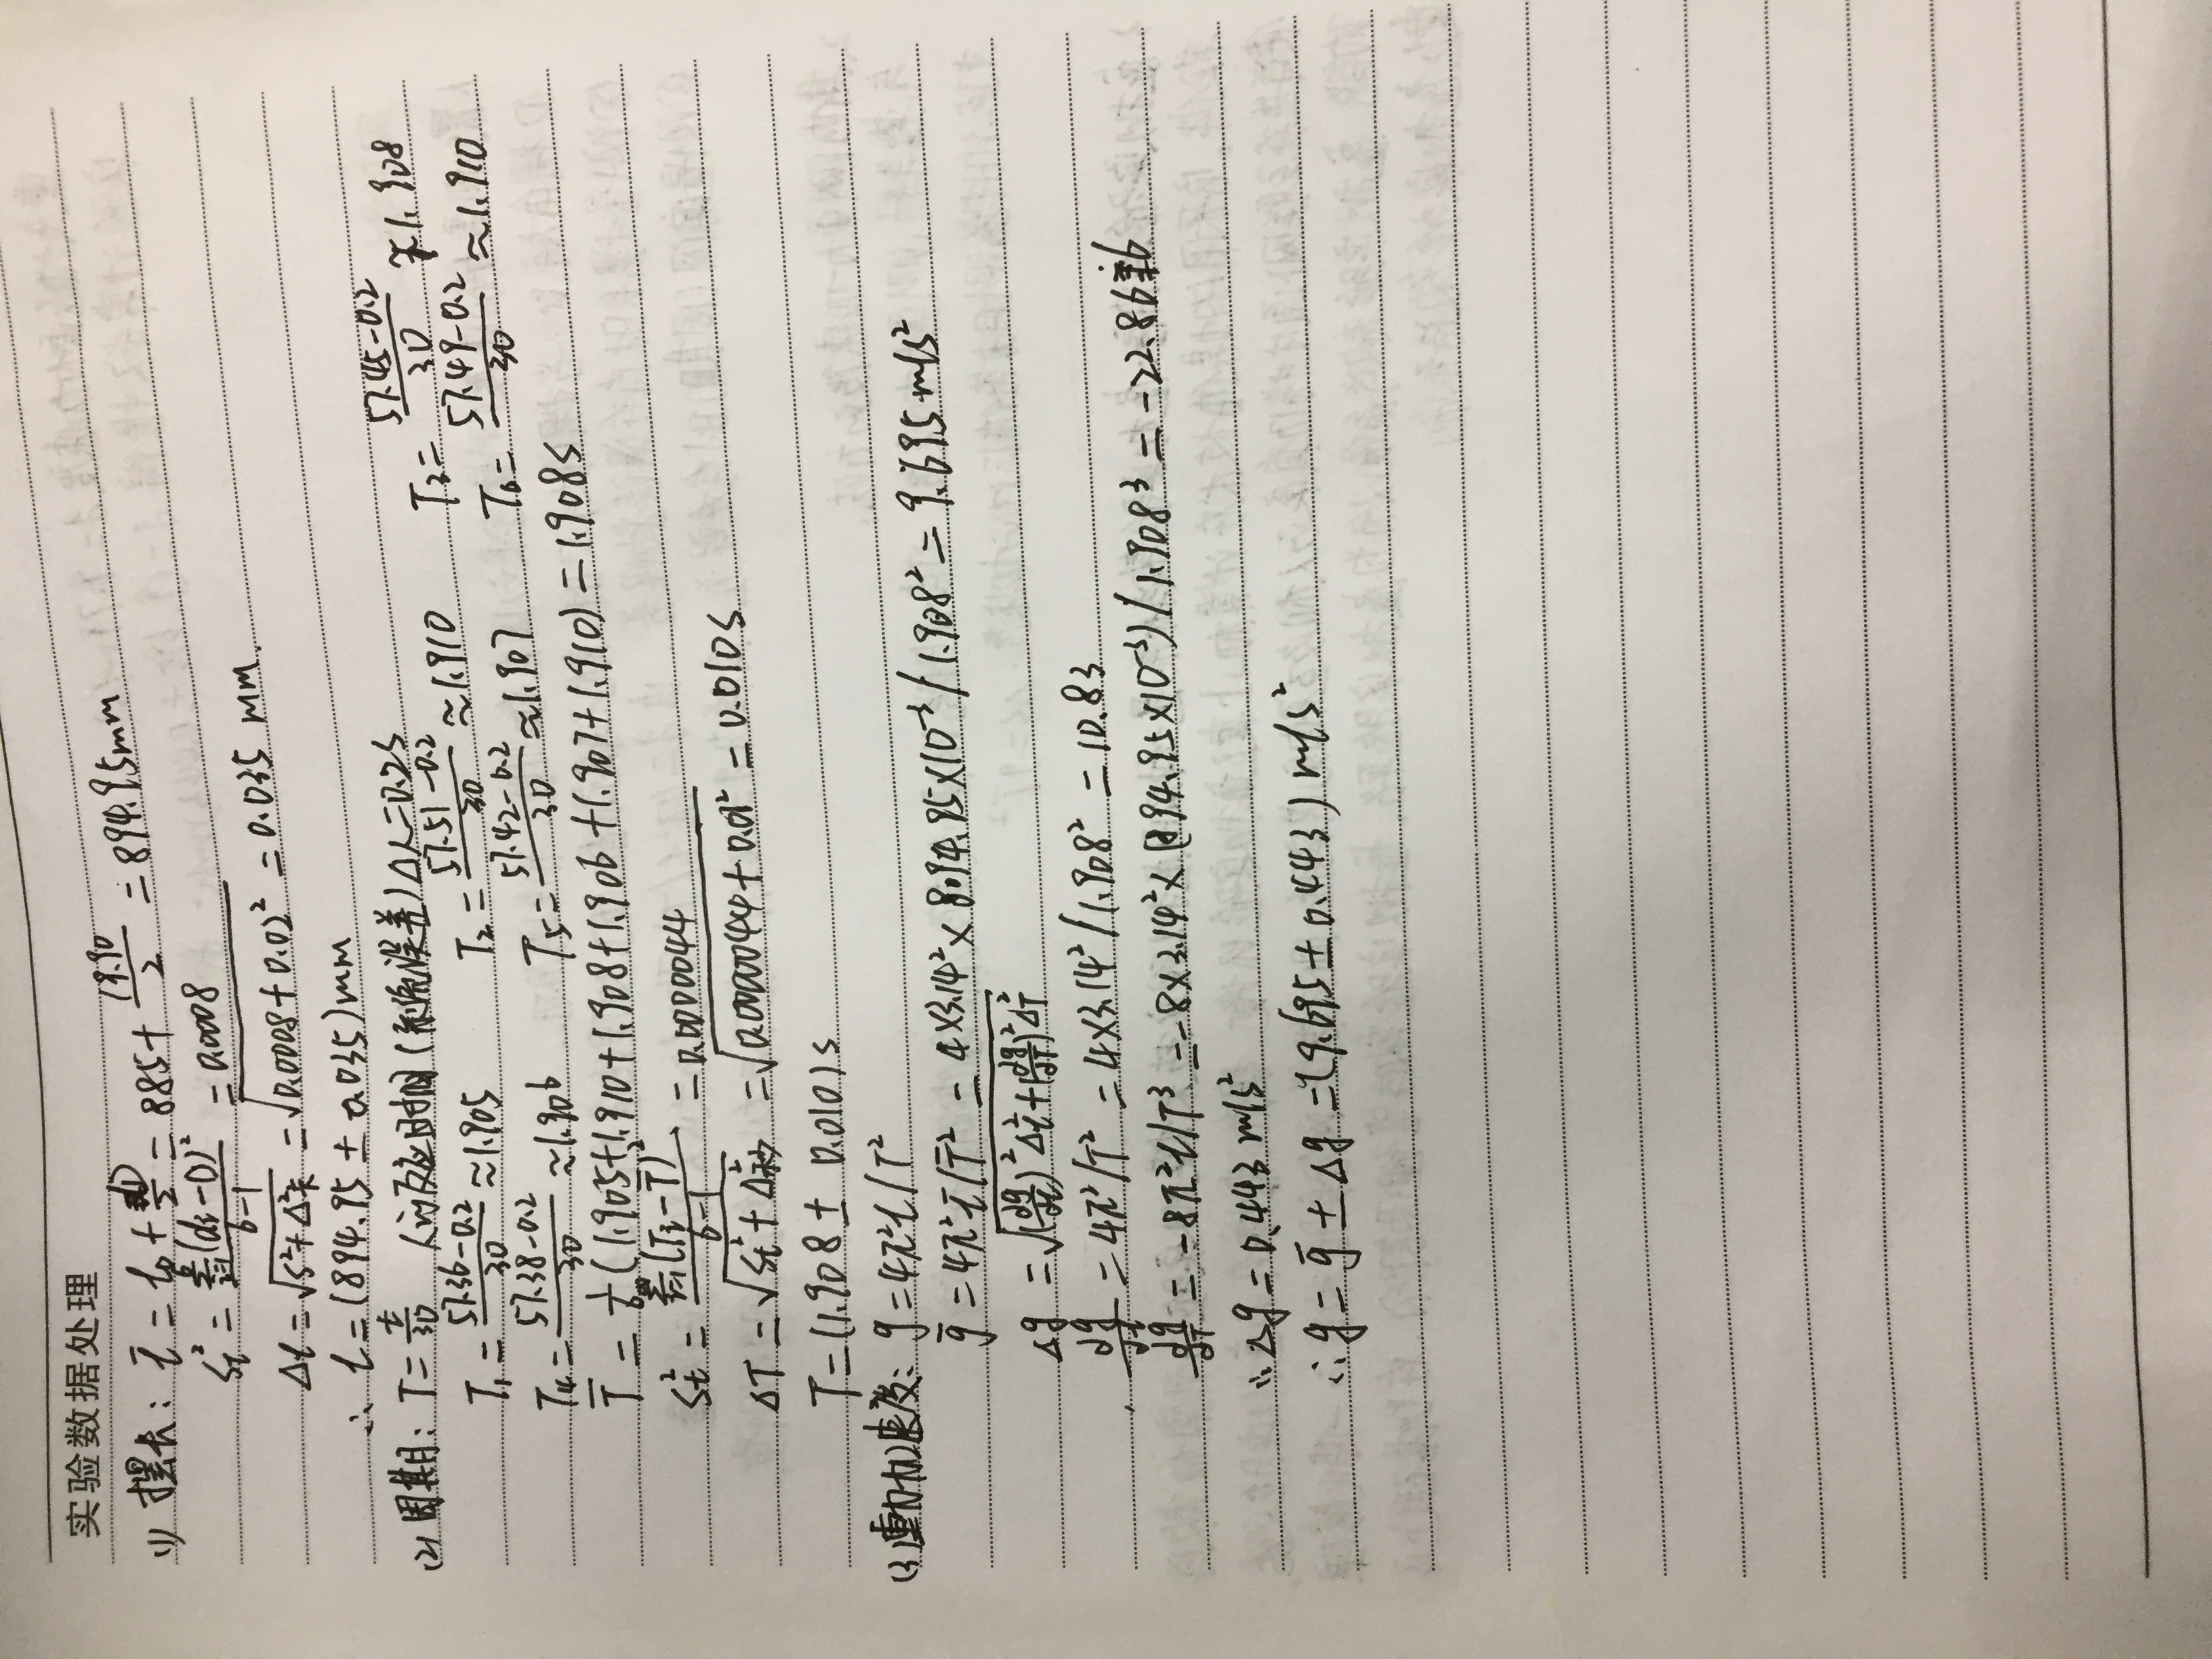 实验数据处理
(1) 摆长: l̄ = l₀ + D/2 = 885 + 19.90/2 = 894.95mm
Sₗ² = Σ(dᵢ-D)²/(6-1) = 0.0008
Δl = √(S²+Δ²米) = √(0.0008+0.02²) = 0.035 mm.
∴ l = (894.95 ± 0.035)mm
(2) 周期: T = t/30 人的反应时间(系统误差)Δ人=0.2s
T₁ = (57.36-0.2)/30 ≈1.905 T₂ = (57.51-0.2)/30 ≈1.910 T₃ = (57.45-0.2)/30 ≈1.908
T₄ = (57.38-0.2)/30 ≈1.906 T₅ = (57.42-0.2)/30 ≈1.907 T₆ = (57.49-0.2)/30 ≈1.910
T̄ = 1/6 (1.905+1.910+1.908+1.906+1.907+1.910) = 1.908s
Sₜ² = Σ(Tᵢ-T̄)²/(6-1) = 0.0000044
ΔT = √(Sₜ²+Δ²秒) = √(0.0000044+0.01²) = 0.010s
T = (1.908 ± 0.010)s
(3) 重力加速度: g = 4π²l/T²
ḡ = 4π²l̄/T̄² = 4×3.14²×894.95×10⁻³/1.908² = 9.695m/s²
Δg = √((∂g/∂l)²Δ²l+(∂g/∂T)²Δ²T)
∂g/∂l = 4π²/T² = 4×3.14²/1.908² = 10.83
∂g/∂T = -8π²l/T³ = -8×3.14²×(894.95×10⁻³)/1.908³ = -22.86
∴ Δg = 0.443 m/s²
∴ g = ḡ ± Δg = (9.695 ± 0.443) m/s²